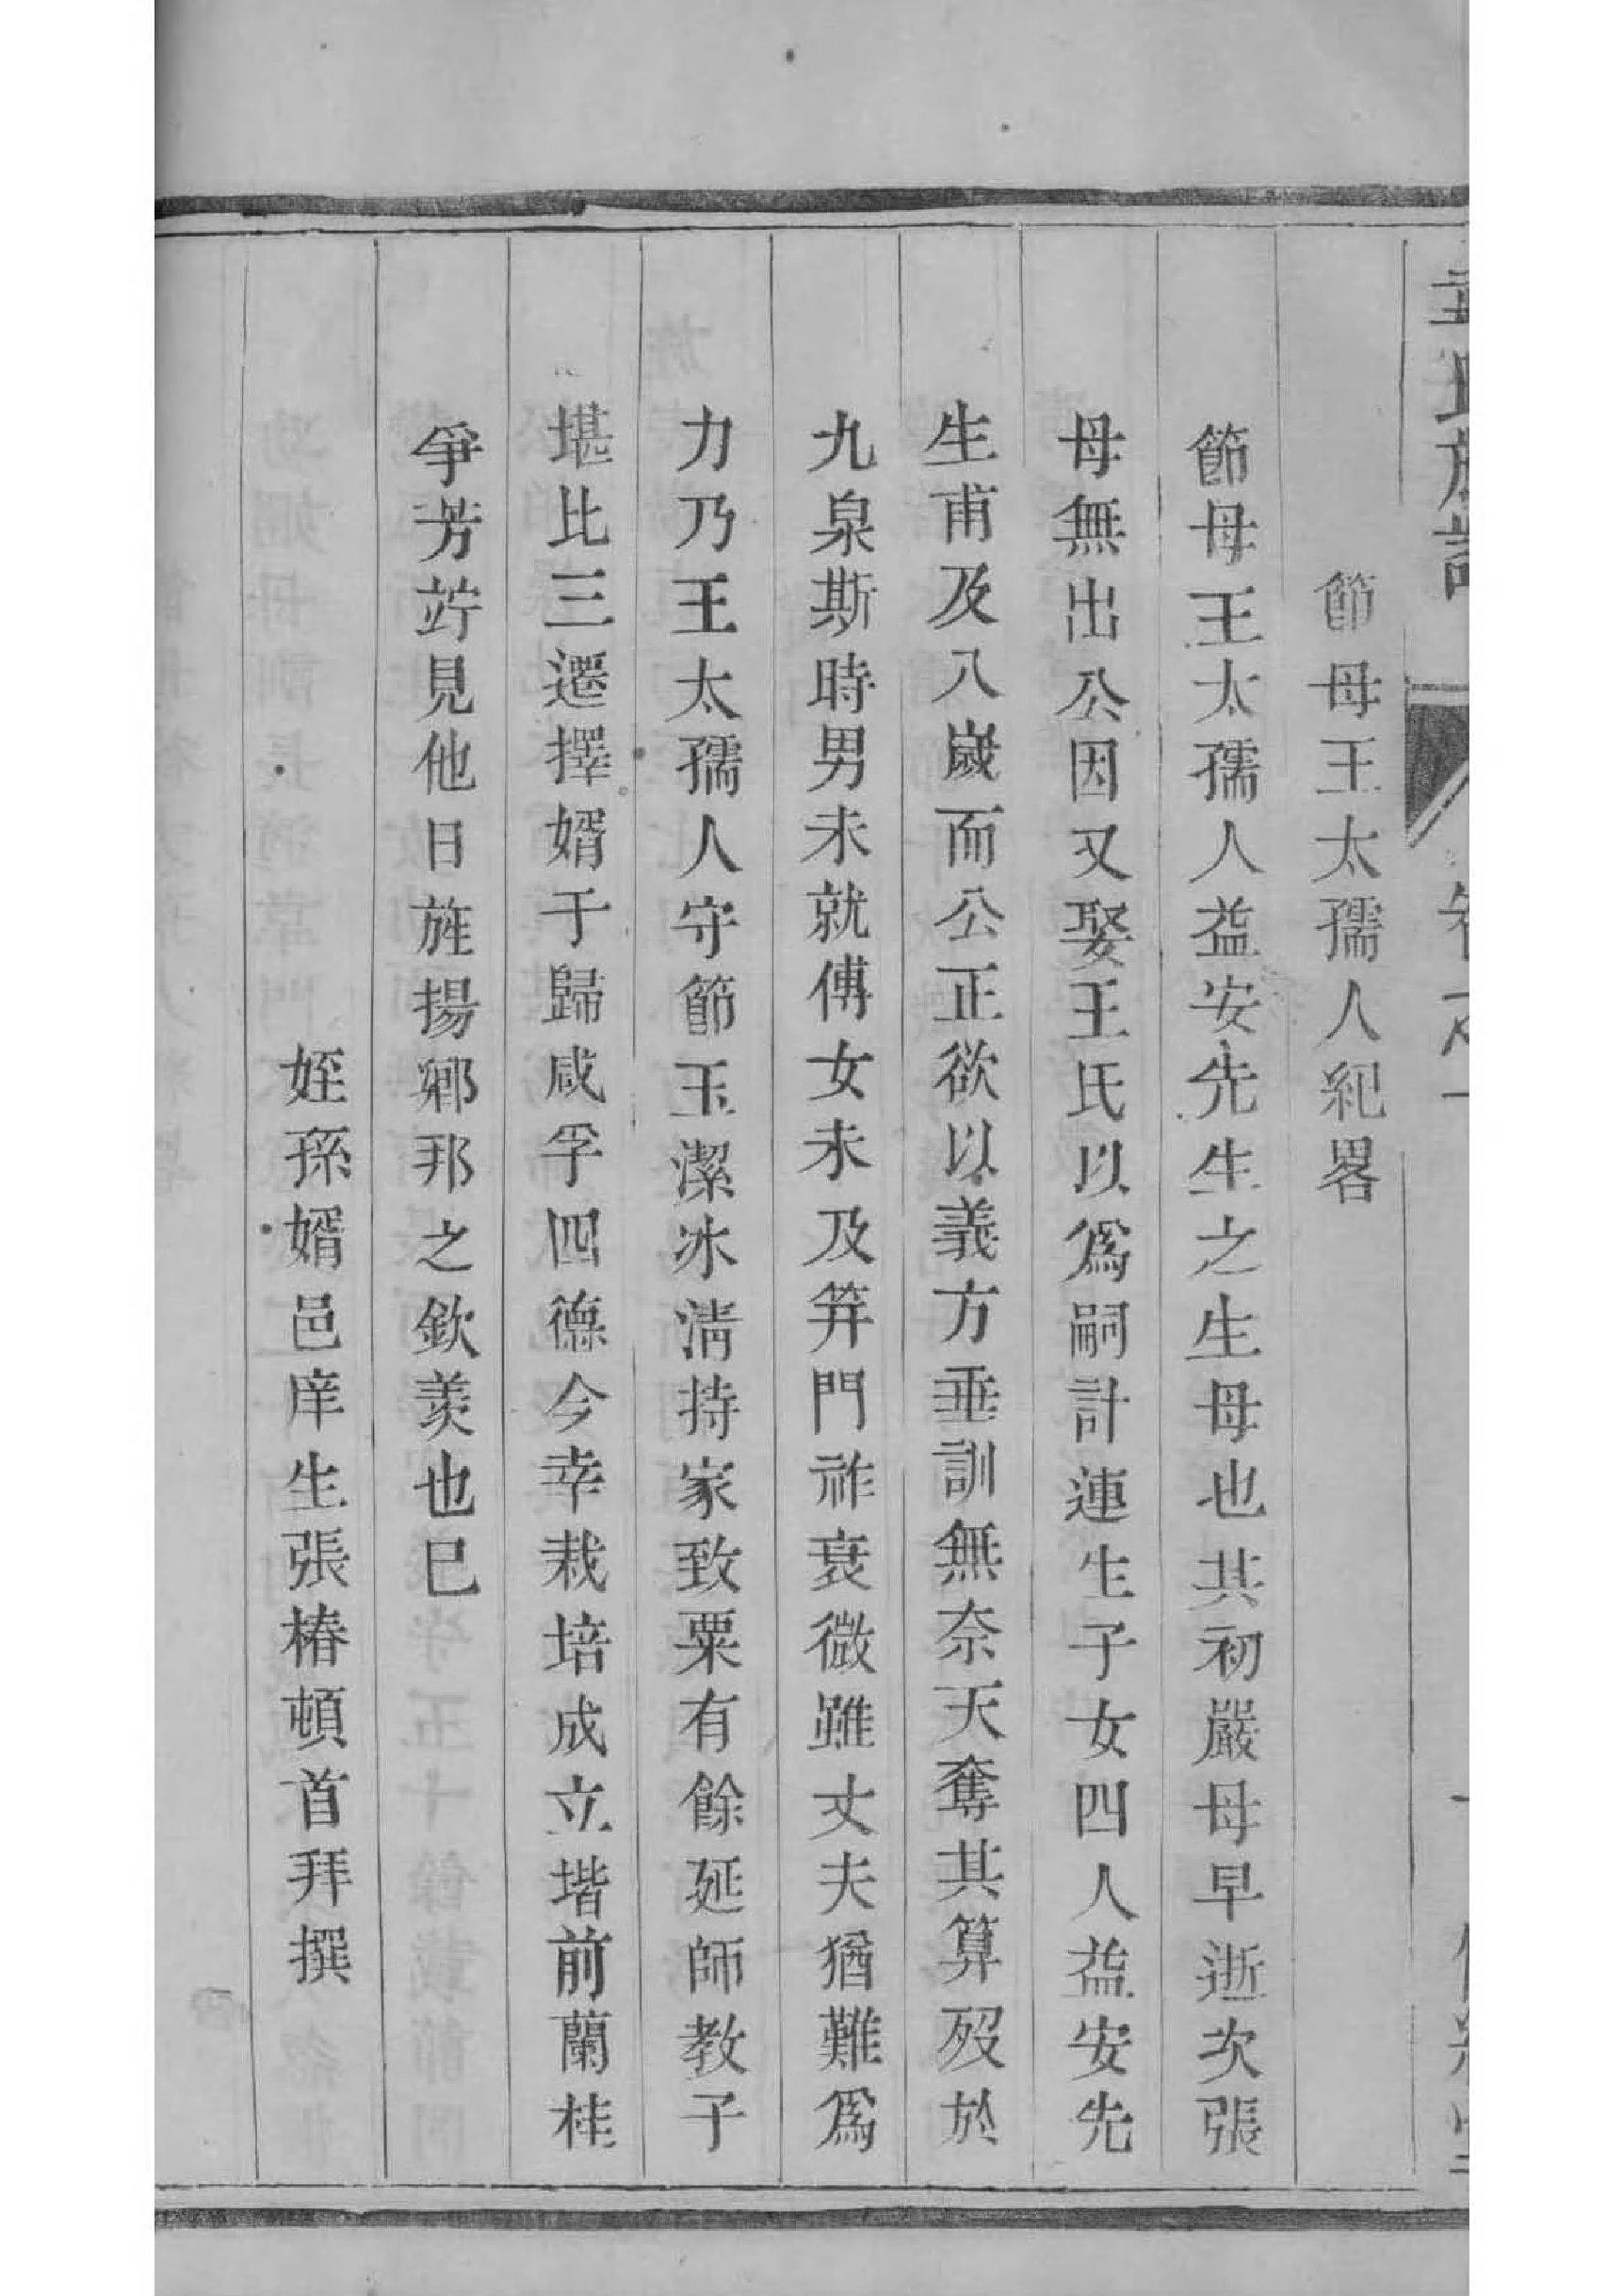 節母王太孺人紀畧
節母王太孺人益安先生之生母也其初嚴母早逝次張
母無出公因又娶王氏以爲嗣計連生子女四人益安先
生甫及八嵗而公正欲以義方垂訓無奈天奪其算歿於
九泉斯時男未就傅女未及笄門祚衰微雖丈夫猶難爲
力乃王太孺人守節玉潔冰清持家致粟有餘延師教子
堪比三遷擇婿于歸咸孚四德今幸栽培成立堦前蘭桂
爭芳竚見他日旌揚鄉邦之欽羨也已
姪孫婿邑庠生張椿頓首拜撰